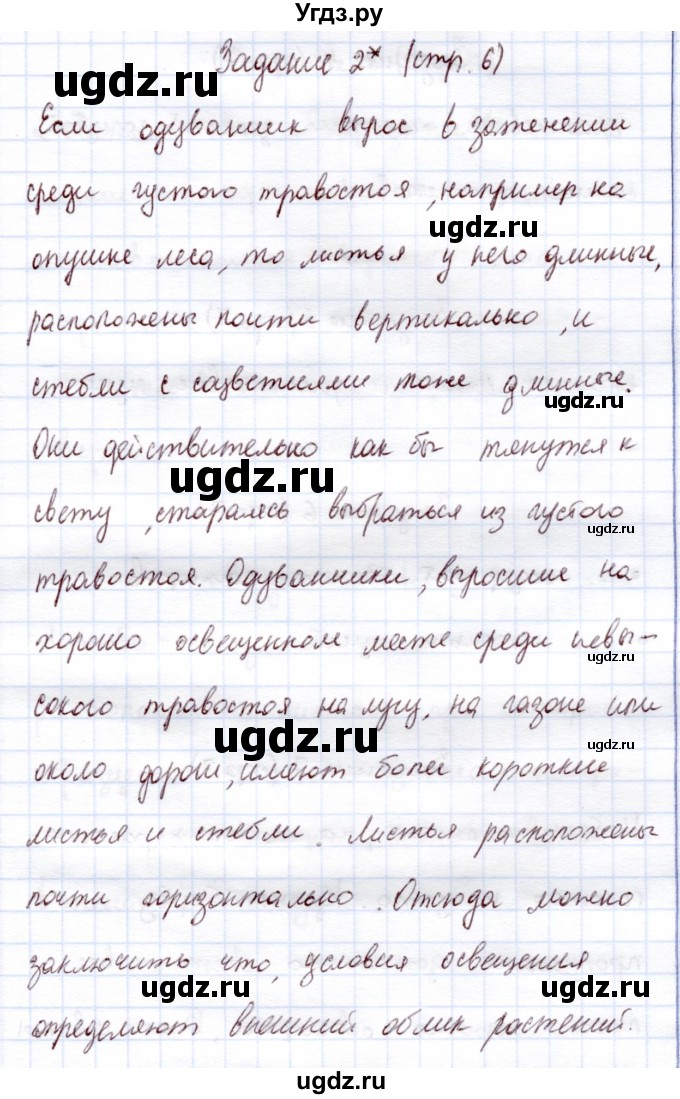 Угдз.ру
Задание 2* (стр. 6)
ugdz.ru
Если одуванчик вырос в затенении
среди густого травостоя, например на
ugdz.ru
опушке леса, то листья у него длинные,
расположены почти вертикально, и
стебли с соцветиями тоже длинные.
ugdz.ru
Они действительно как бы тянутся к
ugdz.ru
свету, стараясь выбраться из густого
ugdz.ru
травостоя. Одуванчики, выросшие на
хорошо освещенном месте среди невы-
ugdz.ru
сокого травостоя на лугу, на газоне или
ugdz.ru
ugdz.ru
около дороги, имеют более короткие
листья и стебли. Листья расположены
почти горизонтально. Отсюда можно
заключить что, условия освещения
ugdz.ru
ugdz.ru
определяют внешний облик растений.
ugdz.ru